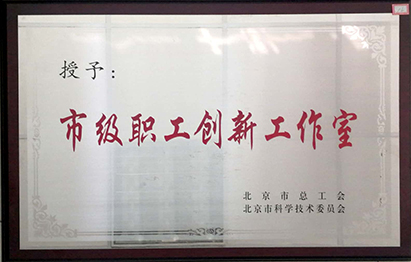 授予：
市级职工创新工作室
北京市总工会
北京市科学技术委员会